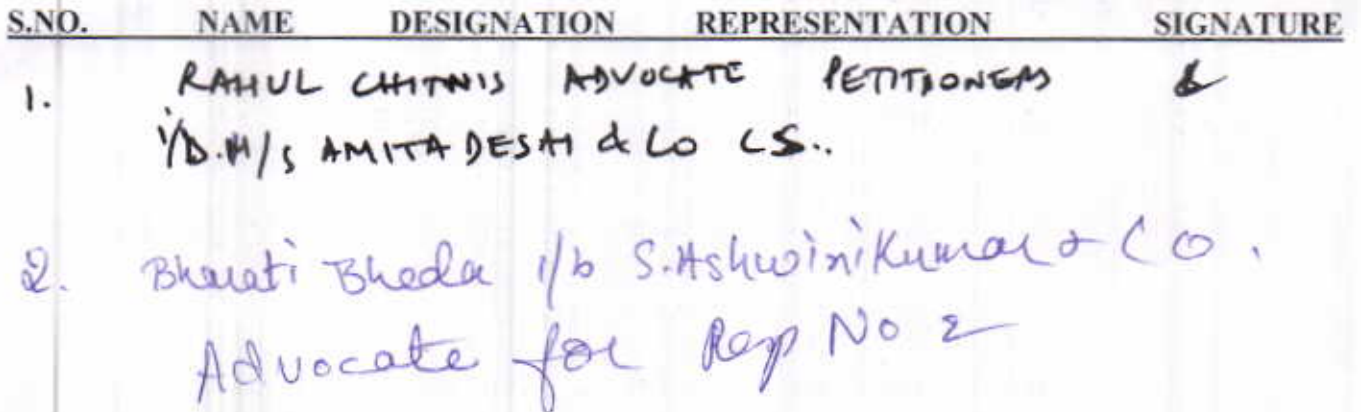 S.NO. NAME DESIGNATION REPRESENTATION SIGNATURE
1. RAHUL CHITNIS ADVOCATE PETITIONERS
i/b. M/s AMITA DESAI & CO CS..
2. Bharati Bheda i/b S.AshwiniKumar & CO.
Advocate for Rep No 2